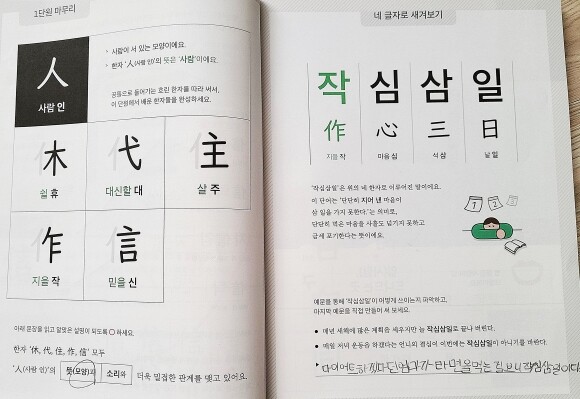 1단원 마무리
人
사람 인
사람이 서 있는 모양이에요.
한자 '人(사람 인)'의 뜻은 '사람'이에요.
공통으로 들어가는 흐린 한자를 따라 써서,
이 단원에서 배운 한자들을 완성하세요.
休 代 主
쉴 휴 대신할 대 살 주
作 信
지을 작 믿을 신
아래 문장을 읽고 알맞은 설명이 되도록 ○ 하세요.
한자 '休, 代, 住, 作, 信' 모두
'人(사람 인)'의 뜻(모양)과 소리와 더욱 밀접한 관계를 맺고 있어요.
네 글자로 새겨보기
작 심 삼 일
作 心 三 日
지을 작 마음 심 석 삼 날 일
'작심삼일'은 위의 네 한자로 이루어진 말이에요.
이 단어는 '단단히 지어 낸 마음이
삼 일을 가지 못한다.'는 의미로,
단단히 먹은 마음을 사흘도 넘기지 못하고
금세 포기한다는 뜻이에요.
1 2 3
예문을 통해 '작심삼일'이 어떻게 쓰이는지 파악하고,
마지막 예문을 직접 만들어 써 보세요.
매년 새해에 많은 계획을 세우지만 늘 작심삼일로 끝나 버린다.
매일 저녁 운동을 하겠다는 언니의 결심이 이번에는 작심삼일이 아니기를 바란다.
다이어트 하 엄마가 라면을 먹는 작심삼일이다